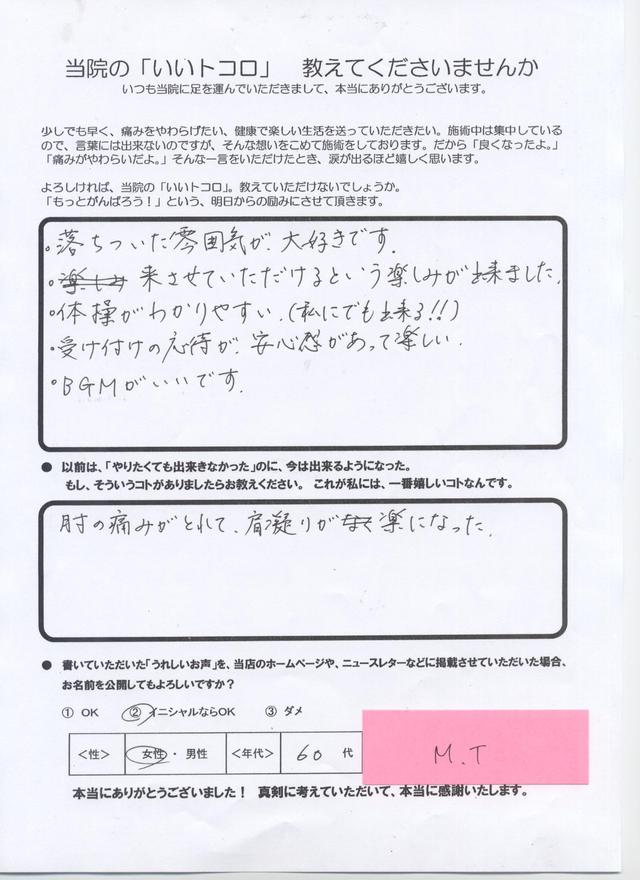 当院の「いいトコロ」　教えてくださいませんか
いつも当院に足を運んでいただきまして、本当にありがとうございます。
少しでも早く、痛みをやわらげたい、健康で楽しい生活を送っていただきたい。施術中は集中している
ので、言葉には出来ないのですが、そんな想いをこめて施術をしております。だから「良くなったよ。」
「痛みがやわらいだよ。」そんな一言をいただけたとき、涙が出るほど嬉しく思います。
よろしければ、当院の「いいトコロ」。教えていただけないでしょうか。
「もっとがんばろう！」という、明日からの励みにさせて頂きます。
・落ちついた雰囲気が、大好きです。
・楽しみ 来させていただけるという楽しみが出来ました。
・体操がわかりやすい。(私にでも出来る!!)
・受け付けの応待が、安心感があって楽しい。
・BGMがいいです。
● 以前は、「やりたくても出来きなかった」のに、今は出来るようになった。
もし、そういうコトがありましたらお教えください。 これが私には、一番嬉しいコトなんです。
肘の痛みがとれて、肩凝りがなく楽になった。
● 書いていただいた「うれしいお声」を、当店のホームページや、ニュースレターなどに掲載させていただいた場合、
お名前を公開してもよろしいですか？
① OK　② イニシャルならOK　③ ダメ
＜性＞　女性 ・ 男性　＜年代＞　60 代　M.T
本当にありがとうございました！　真剣に考えていただいて、本当に感謝いたします。